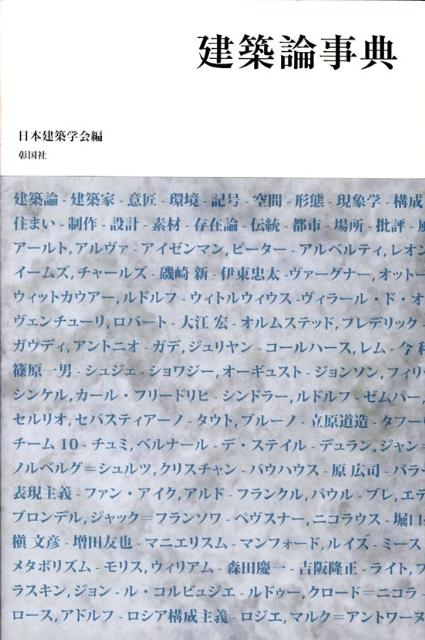 建築論事典
日本建築学会編
彰国社
建築論 - 建築家 - 意匠 - 環境 - 記号 - 空間 - 形態 - 現象学 - 構成
住まい - 制作 - 設計 - 素材 - 存在論 - 伝統 - 都市 - 場所 - 批評 - 風
アールト, アルヴァ - アイゼンマン, ピーター - アルベルティ, レオン
イームズ, チャールズ - 磯崎 新 - 伊東忠太 - ヴァーグナー, オットー
ウィットカウアー, ルドルフ - ウィトルウィウス - ヴィラール・ド・オ
ヴェンチューリ, ロバート - 大江 宏 - オルムステッド, フレデリック
ガウディ, アントニオ - ガデ, ジュリヤン - コールハース, レム - 今 和
篠原一男 - シュジェ - ショワジー, オーギュスト - ジョンソン, フィリ
シンケル, カール・フリードリヒ - シンドラー, ルドルフ - ゼムパー,
セルリオ, セバスティアーノ - タウト, ブルーノ - 立原道造 - タフー
チーム 10 - チュミ, ベルナール - デ・ステイル - デュラン, ジャン=
ノルベルグ=シュルツ, クリスチャン - バウハウス - 原 広司 - パラ
表現主義 - ファン・アイク, アルド - フランクル, パウル - ブレ, エテ
ブロンデル, ジャック=フランソワ - ペヴスナー, ニコラウス - 堀口
槇 文彦 - 増田友也 - マニエリスム - マンフォード, ルイス - ミース
メタボリズム - モリス, ウィリアム - 森田慶一 - 吉阪隆正 - ライト, フ
ラスキン, ジョン - ル・コルビュジエ - ルドゥー, クロード=ニコラ
ロース, アドルフ - ロシア構成主義 - ロジエ, マルク=アントワーヌ